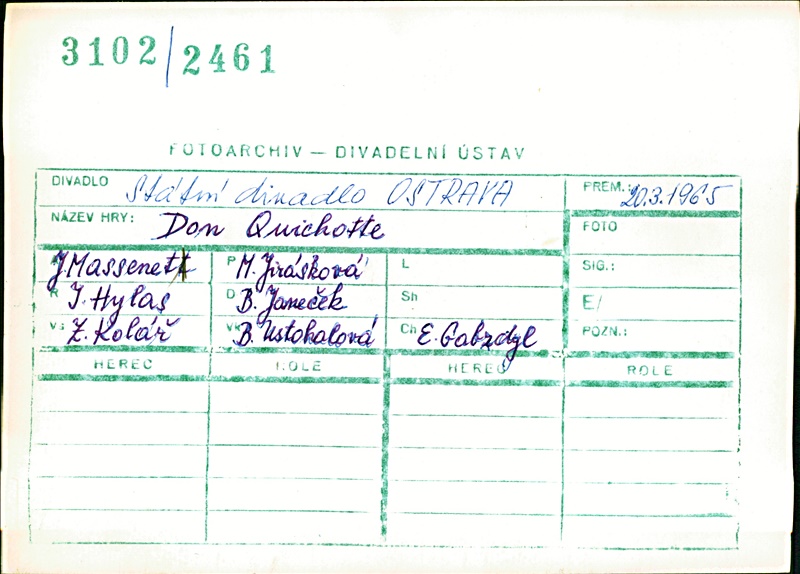 3102/2461
FOTOARCHIV — DIVADELNÍ ÚSTAV
DIVADLO Státní divadlo OSTRAVA PREM.: 20.3.1965
NÁZEV HRY: Don Quichotte FOTO
J. Massenet P M. Jirásková L SIG.:
R J. Hylas D B. Janeček Sh E/
Vs Z. Kolář Vk B. Ustohalová Ch E. Gabzdyl POZN.:
HEREC ROLE HEREC ROLE